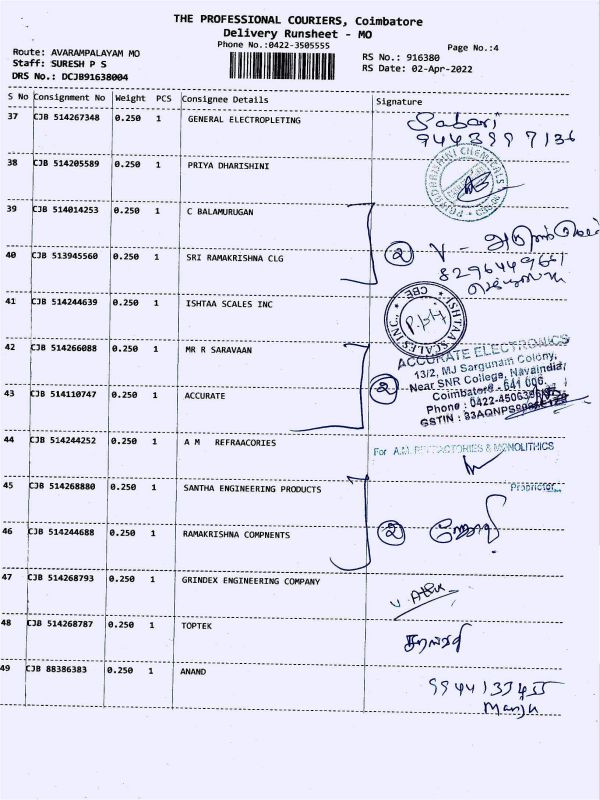 THE PROFESSIONAL COURIERS, Coimbatore
Delivery Runsheet - MO
Phone No.:0422-3505555
Page No.:4
Route: AVARAMPALAYAM MO
Staff: SURESH P S
DRS No.: DCJB91638004
RS No.: 916380
RS Date: 02-Apr-2022
S No Consignment No Weight PCS Consignee Details Signature
37 CJB 514267348 0.250 1 GENERAL ELECTROPLETING
Sabari
9443997136
38 CJB 514205589 0.250 1 PRIYA DHARISHINI
PRIYADHARISHINI CHEMICALS
39 CJB 514014253 0.250 1 C BALAMURUGAN
40 CJB 513945560 0.250 1 SRI RAMAKRISHNA CLG
2
8296449661
41 CJB 514244639 0.250 1 ISHTAA SCALES INC
ISHTAA SCALES INC.
CBE
42 CJB 514266088 0.250 1 MR R SARAVAAN
43 CJB 514110747 0.250 1 ACCURATE
2
ACCURATE ELECTRONICS
13/2, MJ Sargunam Colony,
Near SNR College, Navaindia,
Coimbatore - 641 006.
Phone : 0422-4506
GSTIN : 33AQNPS
44 CJB 514244252 0.250 1 A M REFRAACORIES
For A.M. REFRACTORIES & MONOLITHICS
Proprietor
45 CJB 514268880 0.250 1 SANTHA ENGINEERING PRODUCTS
46 CJB 514244688 0.250 1 RAMAKRISHNA COMPNENTS
2
47 CJB 514268793 0.250 1 GRINDEX ENGINEERING COMPANY
48 CJB 514268787 0.250 1 TOPTEK
49 CJB 88386383 0.250 1 ANAND
Manju